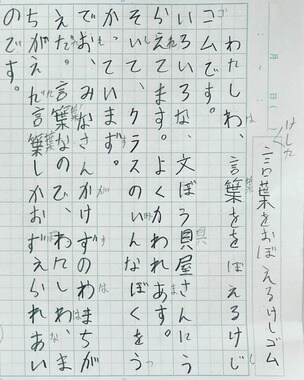 言葉をおぼえるけしゴム
わたしわ、言葉をを ぼえるけし
ゴムです。
いろいろな、文ぼう貝屋さんにう
られてます。よくかわれます。
そして、クラスのいんなぼくをつ
かっています。
でお、みなさんかけずのわまちが
えた。言葉なのひ、わたしわ、ま
ちがえた言葉しかおずえられあい
のです。